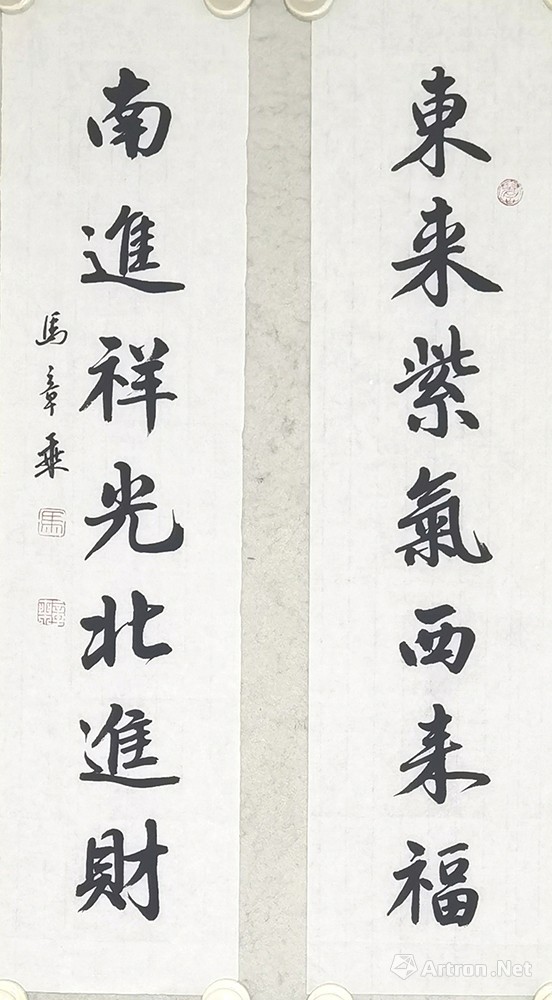 東来紫氣西来福
南進祥光北進財
馬章乘
馬
雅昌 Artron.Net